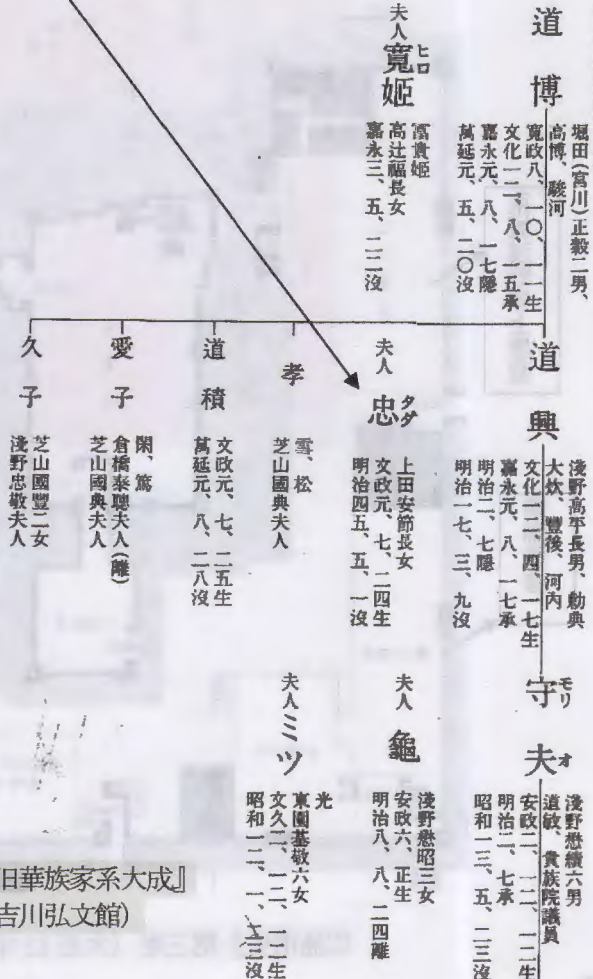 道博
堀田(宮川)正穀二男、
高博、駿河
寛政八、一〇、一一生
文化一二、八、一五承
嘉永元、八、一七隠
萬延元、五、二〇没
夫人 寛姫 ヒロ
富貴姫
高辻福長女
嘉永三、五、二二没
道興
淺野高平長男、勳典
大炊、豐後、河内
文化一二、四、一七生
嘉永元、八、一七承
明治二、七隠
明治一七、三、九没
夫人 忠 タダ
上田安節長女
文政元、七、二四生
明治四五、五、一没
孝
雪、松
芝山國典夫人
道積
文政元、七、二五生
萬延元、八、二八没
愛子
閑、篤
倉橋泰聰夫人(離)
芝山國典夫人
久子
芝山國豐二女
淺野忠敬夫人
守夫 モリオ
淺野懋績六男
道敏、貴族院議員
安政二、一二、一二生
明治二、七承
昭和一三、五、二三没
夫人 龜
淺野懋昭三女
安政六、正生
明治八、八、二四離
夫人 ミツ
光
東園基敬六女
文久二、一二、一二生
昭和一二、一、二三没
旧華族家系大成』
吉川弘文館)